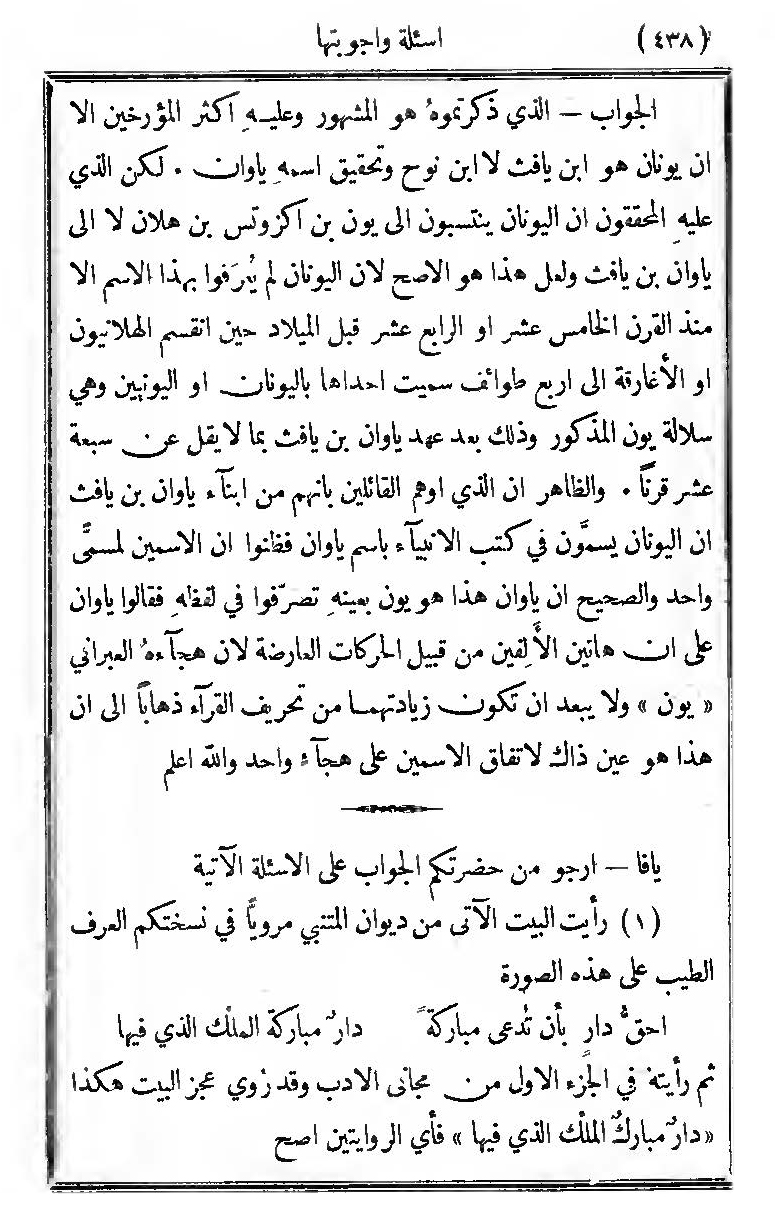 (٤٣٨) اسئلة واجوبتها
الجواب – الذي ذكرتموهُ هو المشهور وعليهِ اكثر المؤرخين الا
ان يونان هو ابن يافث لا ابن نوح وتحقيق اسمهِ ياوان ٠ لكن الذي
عليهِ المحققون ان اليونان ينتسبون الى يون بن اكزوتس بن هلان لا الى
ياوان بن يافث ولعل هذا هو الاصح لان اليونان لم يُعرَفوا بهذا الاسم الا
منذ القرن الخامس عشر او الرابع عشر قبل الميلاد حين انقسم الهلانيون
او الأغارقة الى اربع طوائف سميت احداها باليونان او اليونيين وهي
سلالة يون المذكور وذلك بعد عهد ياوان بن يافث بما لا يقل عن سبعة
عشر قرناً ٠ والظاهر ان الذي اوهم القائلين بانهم من ابنآء ياوان بن يافث
ان اليونان يسمَّون في كتب الانبيآء باسم ياوان فظنوا ان الاسمين لمسمًّى
واحد والصحيح ان ياوان هذا هو يون بعينهِ تصرّفوا في لفظهِ فقالوا ياوان
على ان هاتين الأَلِفين من قبيل الحركات العارضة لان هجآءهُ العبراني
« يون » ولا يبعد ان تكون زيادتهما من تحريف القرآء ذهاباً الى ان
هذا هو عين ذاك لاتفاق الاسمين على هجآء واحد والله اعلم
يافا – ارجو من حضرتكم الجواب على الاسئلة الآتية
(١) رأيت البيت الآتى من ديوان المتنبي مرويًّا في نسختكم العرف
الطيب على هذه الصورة
احقُّ دارٍ بأن تُدعى مباركةً دارٌ مباركة الملْك الذي فيها
ثم رأيتهُ في الجزء الاول من مجانى الادب وقد رُوي عجز البيت هكذا
« دارٌ مباركٌ الملْك الذي فيها » فأي الروايتين اصح